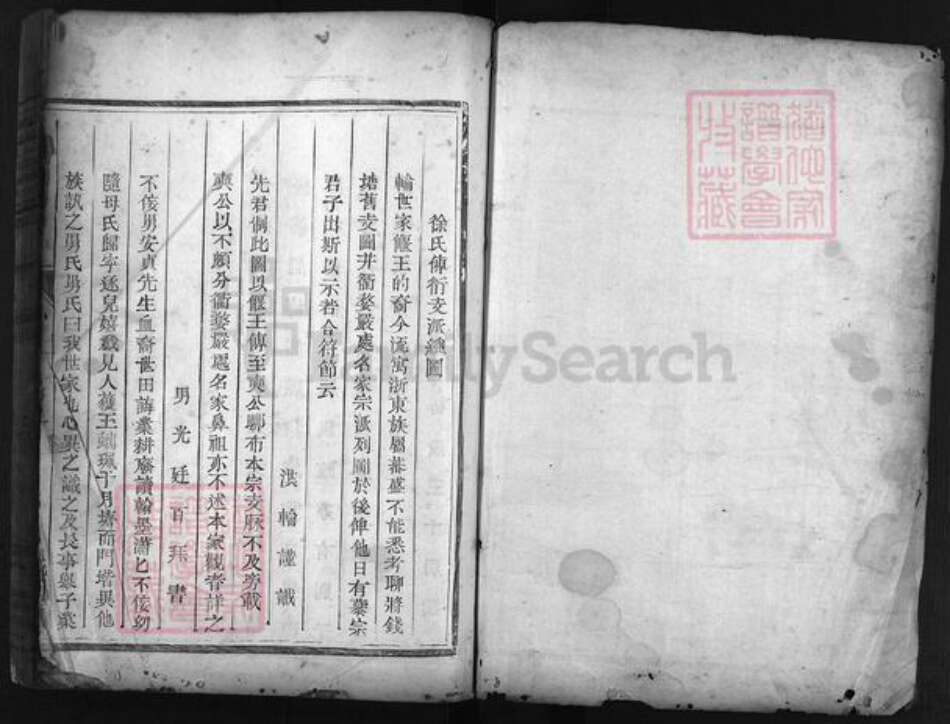 徐氏傳衍支派總圖
輪世家偃王的裔今流寓浙東族屬蕃盛不能悉考聊將錢
塘舊支圖并衢婺嚴處名家宗派列圖於後俾他日有棄宗
君子出斯以示若合符節云
淇輪謹識
先君倣此圖以偃王傳至爽公聊布本宗支脉不及旁戴
爽公以不顯分衢婺嚴處名家鼻祖亦不述本家觀者詳之
男光廷百拜書
不佞男安貞先生血裔世田誦業耕齋讀翰墨蕭匕不佞幼
隨母氏歸寧逐兒嬉戲見人獲玉珮于月塘而門堦與他
族訊之男氏男氏曰我世家也心異之識之及長事舉子業
譜學會
FamilySearch